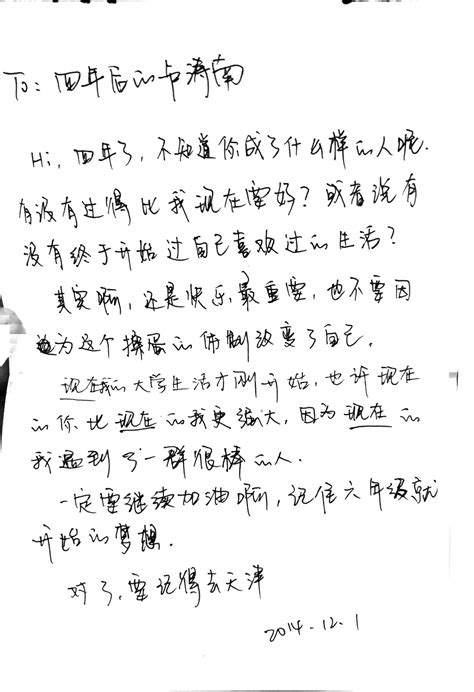 To: 四年后的卢海南
Hi, 四年了, 不知道你成了什么样的人呢.
有没有过得比我现在要好? 或者说有
没有终于开始过自己喜欢过的生活?
其实啊, 还是快乐最重要, 也不要因
为这个操蛋的体制改变了自己.
现在我的大学生活才刚开始, 也许现在
的你比现在的我更强大, 因为现在的
我遇到了一群很棒的人.
一定要继续加油啊, 记住六年级就
开始的梦想.
对了, 要记得去天津
2014.12.1